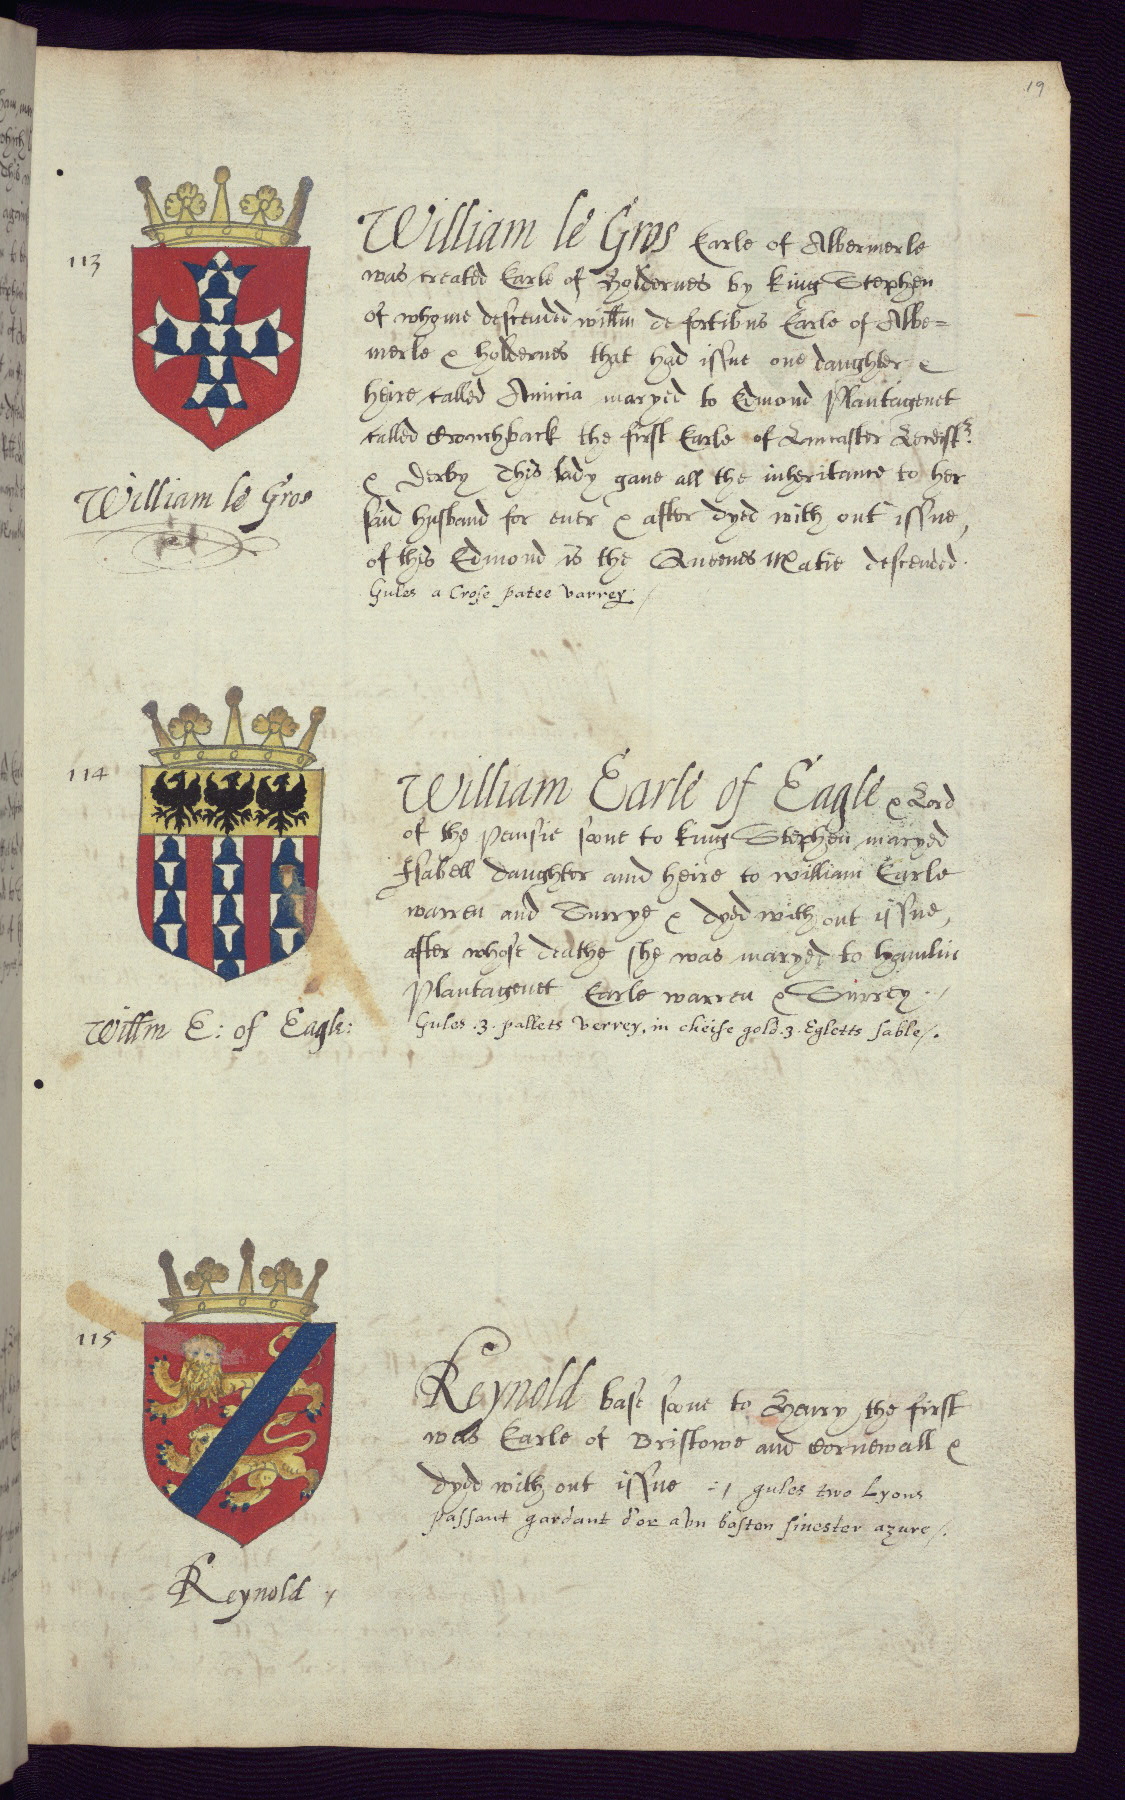 19
113
William le Gros Earle of Albermerle
was created Earle of Holdernes by king Stephen
of whome descended willm de fortibus Earle of Albe=
merle & holdernes that had issue one daughter &
heire called Avicia maryed to Edmond Plantagenet
called Crouchback the first Earle of Lancaster
& Derby This lady gaue all the inheritance to her
said husband for euer & after dyed with out issue,
of this Edmond is the Queenes Matie descended.
Gules a Crose patee varrey
William le Gros
114
William Earle of Eagle & Lord
of the sonne to king Stephen maryed
Isabell daughter and heire to william Earle
warren and Surrye & dyed with out issue,
after whose deathe she was maryed to hamlin
Plantagenet Earle warren & Surrey
Gules .3. pallets verrey, in cheife gold .3. Egletts sable.
Willm E: of Eagle:
115
Reynold base sonne to Henry the first
was Earle of Bristowe and Cornewall &
dyed with out issue gules two Lyons
passant gardant d'or a baston sinester azure.
Reynold